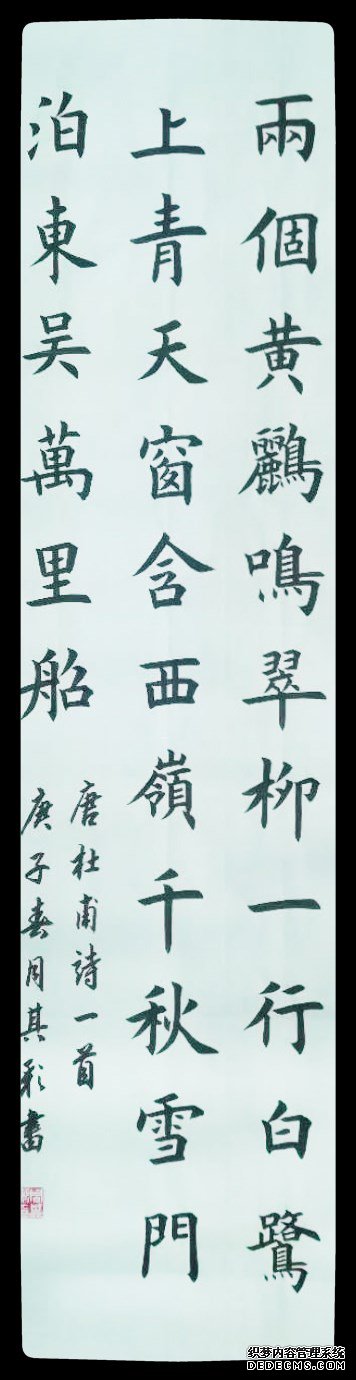 兩個黄鸝鳴翠柳一行白鷺
上青天窗含西嶺千秋雪門
泊東吴萬里船
唐杜甫詩一首
庚子春月其彩書
织梦内容管理系统
DEDECMS.COM